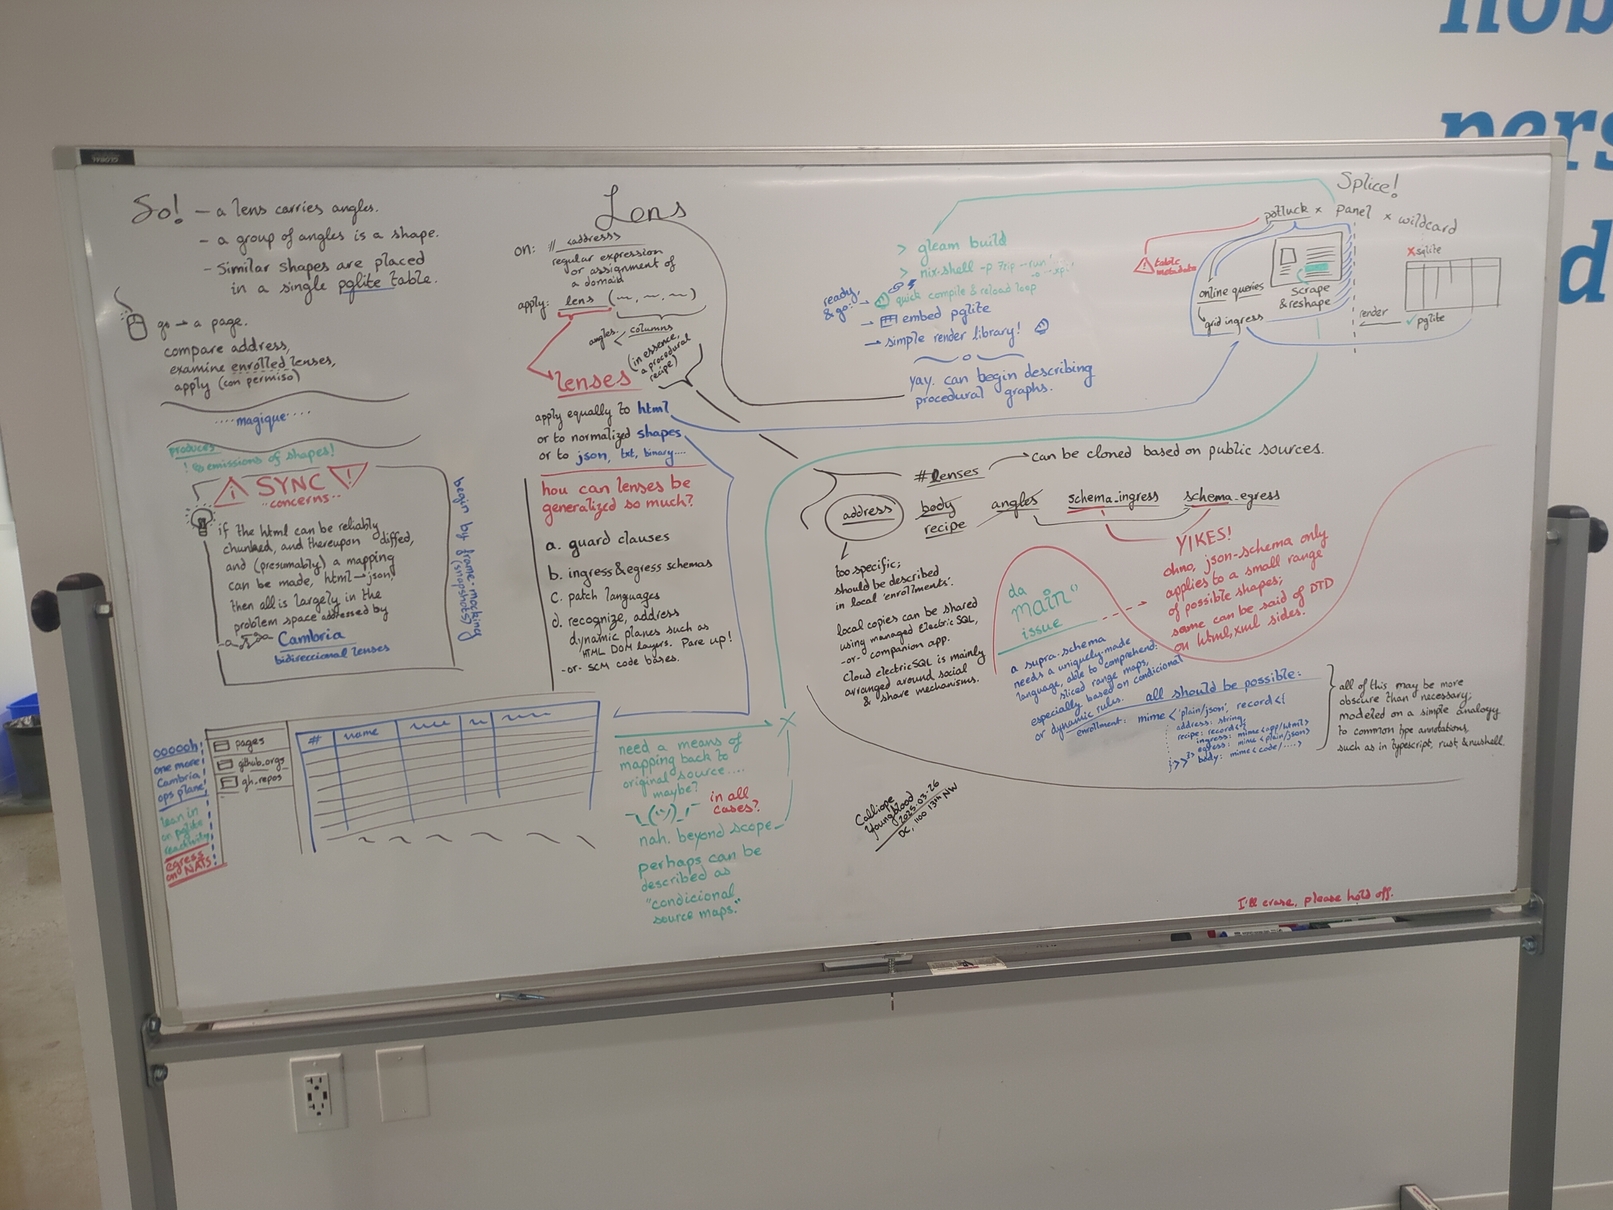 So! – a lens carries angles.
– a group of angles is a shape.
– similar shapes are placed
in a single pglite table.
go → a page.
compare address,
examine enrolled lenses,
apply (con permiso)
....magique....
produces
emissions of shapes!
SYNC
..concerns..
if the html can be reliably
chunked, and thereupon diffed,
and (presumably) a mapping
can be made, html → json!
then all is largely in the
problem space addressed by
Cambria
bidireccional lenses
begin by frame-mocking
(snapshots)
Lens
on: # address
regular expression
or assignment of
a domain
apply: lens (~, ~, ~)
angles < columns
(in essence,
a procedural
recipe)
lenses
apply equally to html
or to normalized shapes,
or to json, txt, binary....
how can lenses be
generalized so much?
a. guard clauses
b. ingress & egress schemas
c. patch languages
d. recognize, address
dynamic planes such as
HTML DOM layers. Pare up!
-or- SCM code bases.
> gleam build
> nix-shell -p
ready,
& go:
quick compile & reload loop
→ embed pglite
→ simple render library!
yay. can begin describing
procedural graphs.
Splice!
potluck × panel × wildcard
table
metadata
online queries
grid ingress
scrape
& reshape
X sqlite
render
✓ pglite
# lenses → can be cloned based on public sources.
address body angles schema_ingress schema_egress
recipe
too specific;
should be described
in local 'enrollments'.
local copies can be shared
using managed ElectricSQL,
-or- companion app.
Cloud electricSQL is mainly
arranged around social
& share mechanisms.
YIKES!
ohno, json-schema only
applies to a small range
of possible shapes;
same can be said of DTD
on html, xml sides.
da
"main"
issue
a supra-schema
needs a uniquely-made
language, able to comprehend:
sliced range maps,
especially based on condicional
or dynamic rules.
all should be possible:
enrollment: mime <'plain/json', record<{
address: string,
recipe: record<{
ingress: mime <app/html>
egress: mime <plain/json>
body: mime <code/....>
}>}>
all of this may be more
obscure than necessary;
modeled on a simple analogy
to common type annotations,
such as in typescript, rust, & nushell.
oooooh!
one more
Cambria
ops plane!
lean in
on pglite
reactivity
egress
on NATS
pages
github.orgs
gh.repos
# name
need a means of
mapping back to
original source....
maybe?
in all
cases?
nah. beyond scope
perhaps can be
described as
"condicional
source maps."
Calliope
Youngblood
2025-03-26
DC, 1100 13th NW
I'll erase, please hold off.